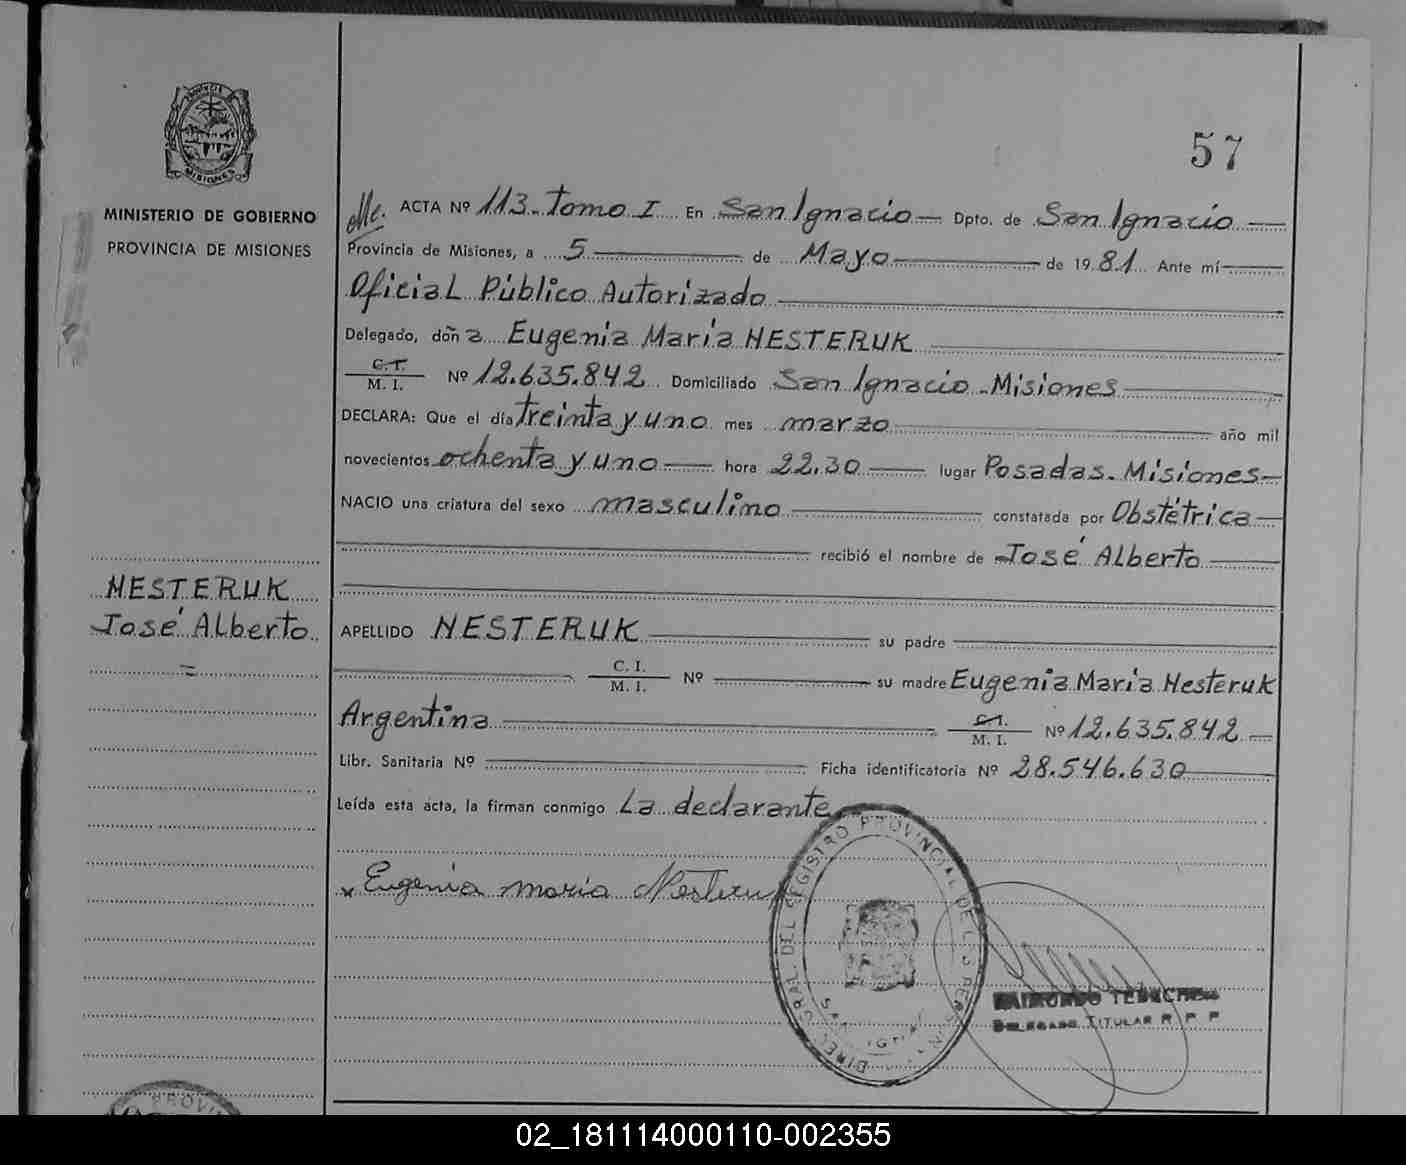 57
MINISTERIO DE GOBIERNO
PROVINCIA DE MISIONES
ACTA Nº 113 - Tomo I En San Ignacio Dpto. de San Ignacio
Provincia de Misiones, a 5 de Mayo de 1981 Ante mí
Oficial Público Autorizado
Delegado, doña Eugenia Maria NESTERUK
C.I. M. I. Nº 12.635.842 Domiciliado San Ignacio - Misiones
DECLARA: Que el día treinta y uno mes marzo año mil
novecientos ochenta y uno hora 22.30 lugar Posadas - Misiones
NACIO una criatura del sexo masculino constatada por Obstétrica
recibió el nombre de José Alberto
NESTERUK
José Alberto
APELLIDO NESTERUK su padre
C. I. M. I. Nº su madre Eugenia Maria Nesteruk
Argentina C.I. M. I. Nº 12.635.842
Libr. Sanitaria Nº Ficha identificatoria Nº 28.546.630
Leída esta acta, la firman conmigo La declarante
x Eugenia maria Nesteruk
DIREC. GRAL. DEL REGISTRO PROVINCIAL DE LAS PERSONAS
SAN IGNACIO
RAIMUNDO
DELEGADO TITULAR R P P
PROVIN
02_181114000110-002355